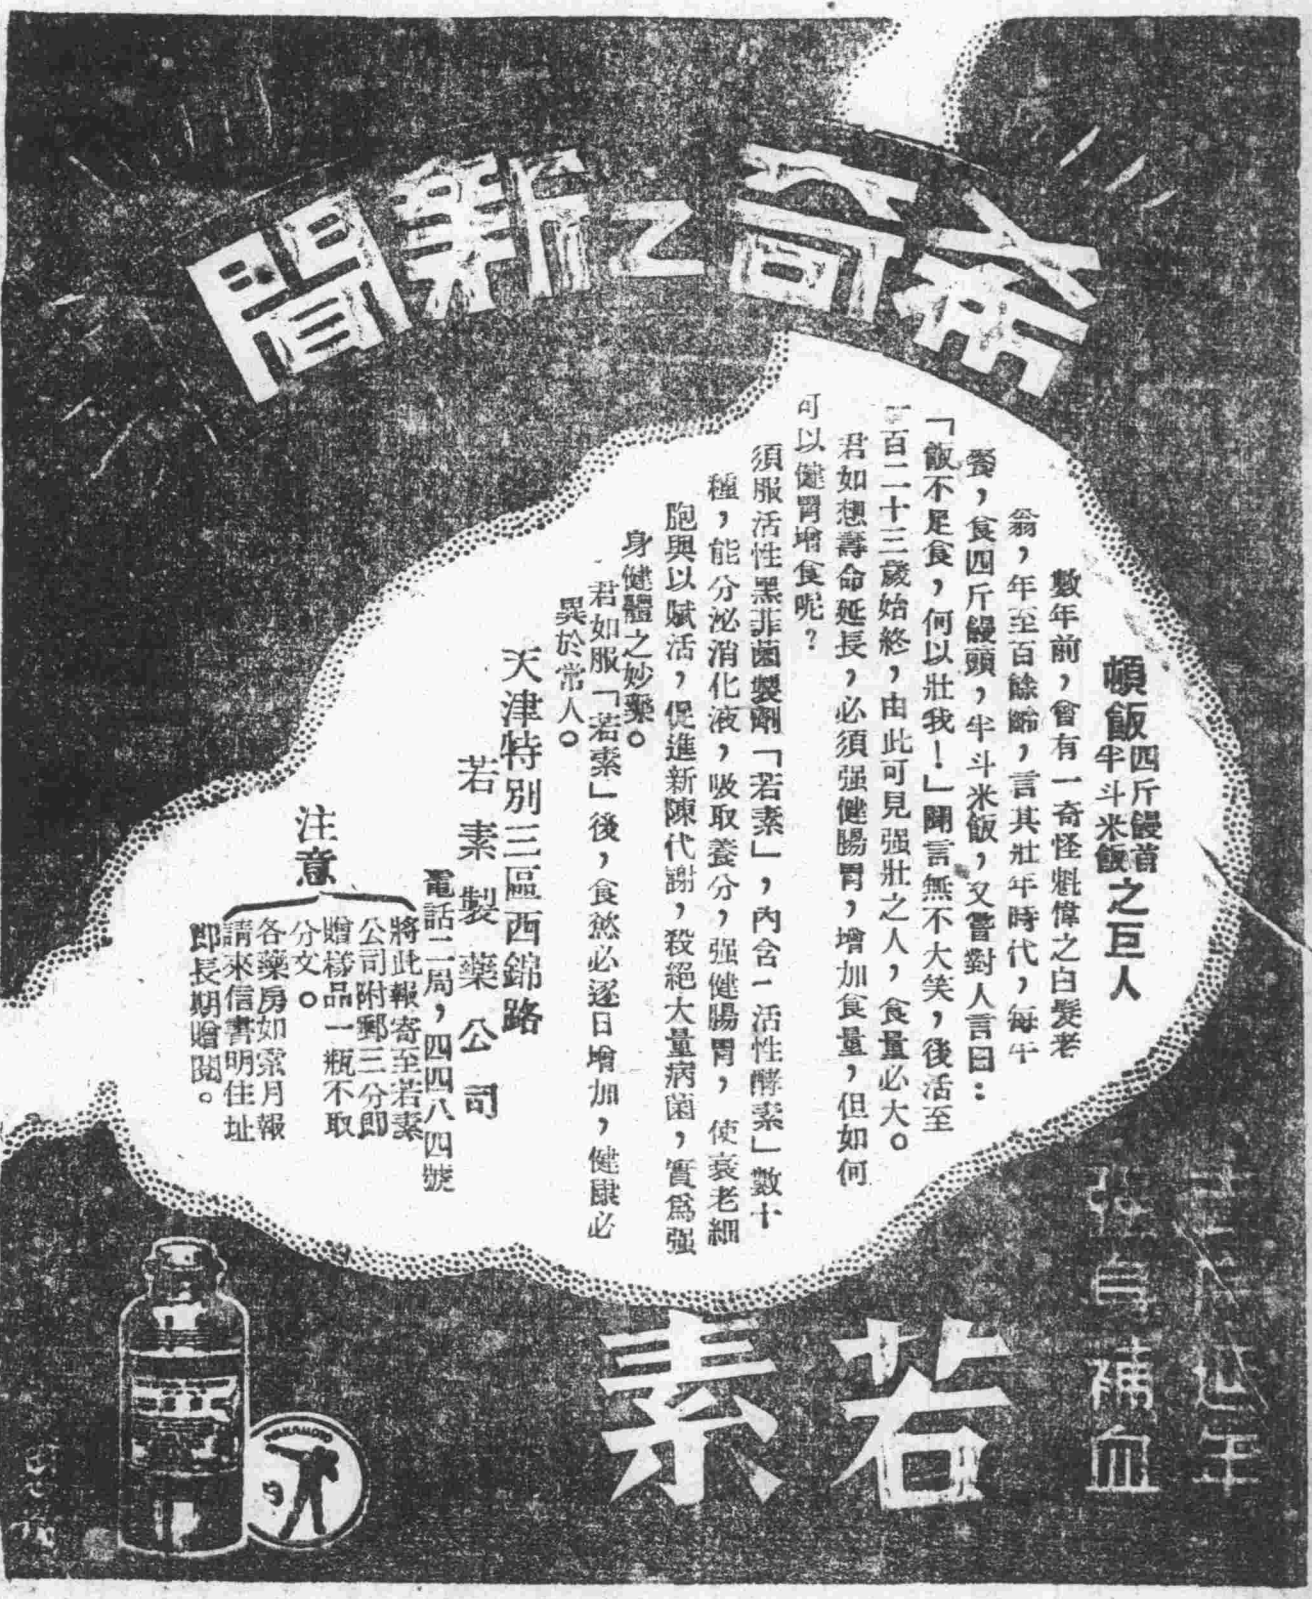 希奇之新聞
頓飯四斤饅首半斗米飯之巨人
數年前，曾有一奇怪魁偉之白髮老
翁，年至百餘齡，言其壯年時代，每午
餐，食四斤饅頭，半斗米飯，又嘗對人言曰：
「飯不足食，何以壯我！」聞言無不大笑，後活至
百二十三歲始終，由此可見强壯之人，食量必大。
君如想壽命延長，必須强健腸胃，增加食量，但如何
可以健胃增食呢？
須服活性黑菲菌製劑「若素」，內含「活性酵素」數十
種，能分泌消化液，吸取養分，强健腸胃，使衰老細
胞與以賦活，促進新陳代謝，殺絕大量病菌，實爲强
身健體之妙藥。
君如服「若素」後，食慾必逐日增加，健康必
異於常人。
天津特別三區西錦路
若素製藥公司
電話二局，四四八四號
注意
將此報寄至若素
公司附郵三分即
贈樣品一瓶不取
分文。
各藥房如索月報
請來信書明住址
即長期贈閱。
延年
强身補血
若素